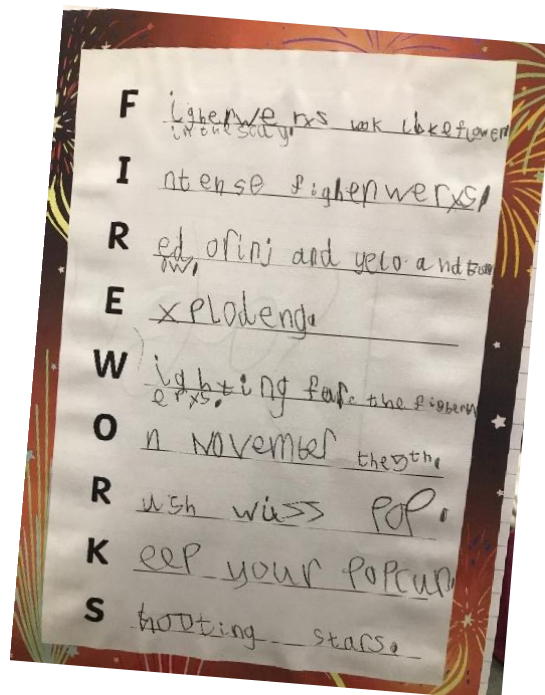 F igherwerxs look likeflowers
in the scay.
I ntense figherwerxs,
R ed orinj and yelo and
E xplodeng.
W ighting for the figherw
erxs.
O n November the 5th.
R ush wiss POP.
K eep your Popcun
S hooting stars.